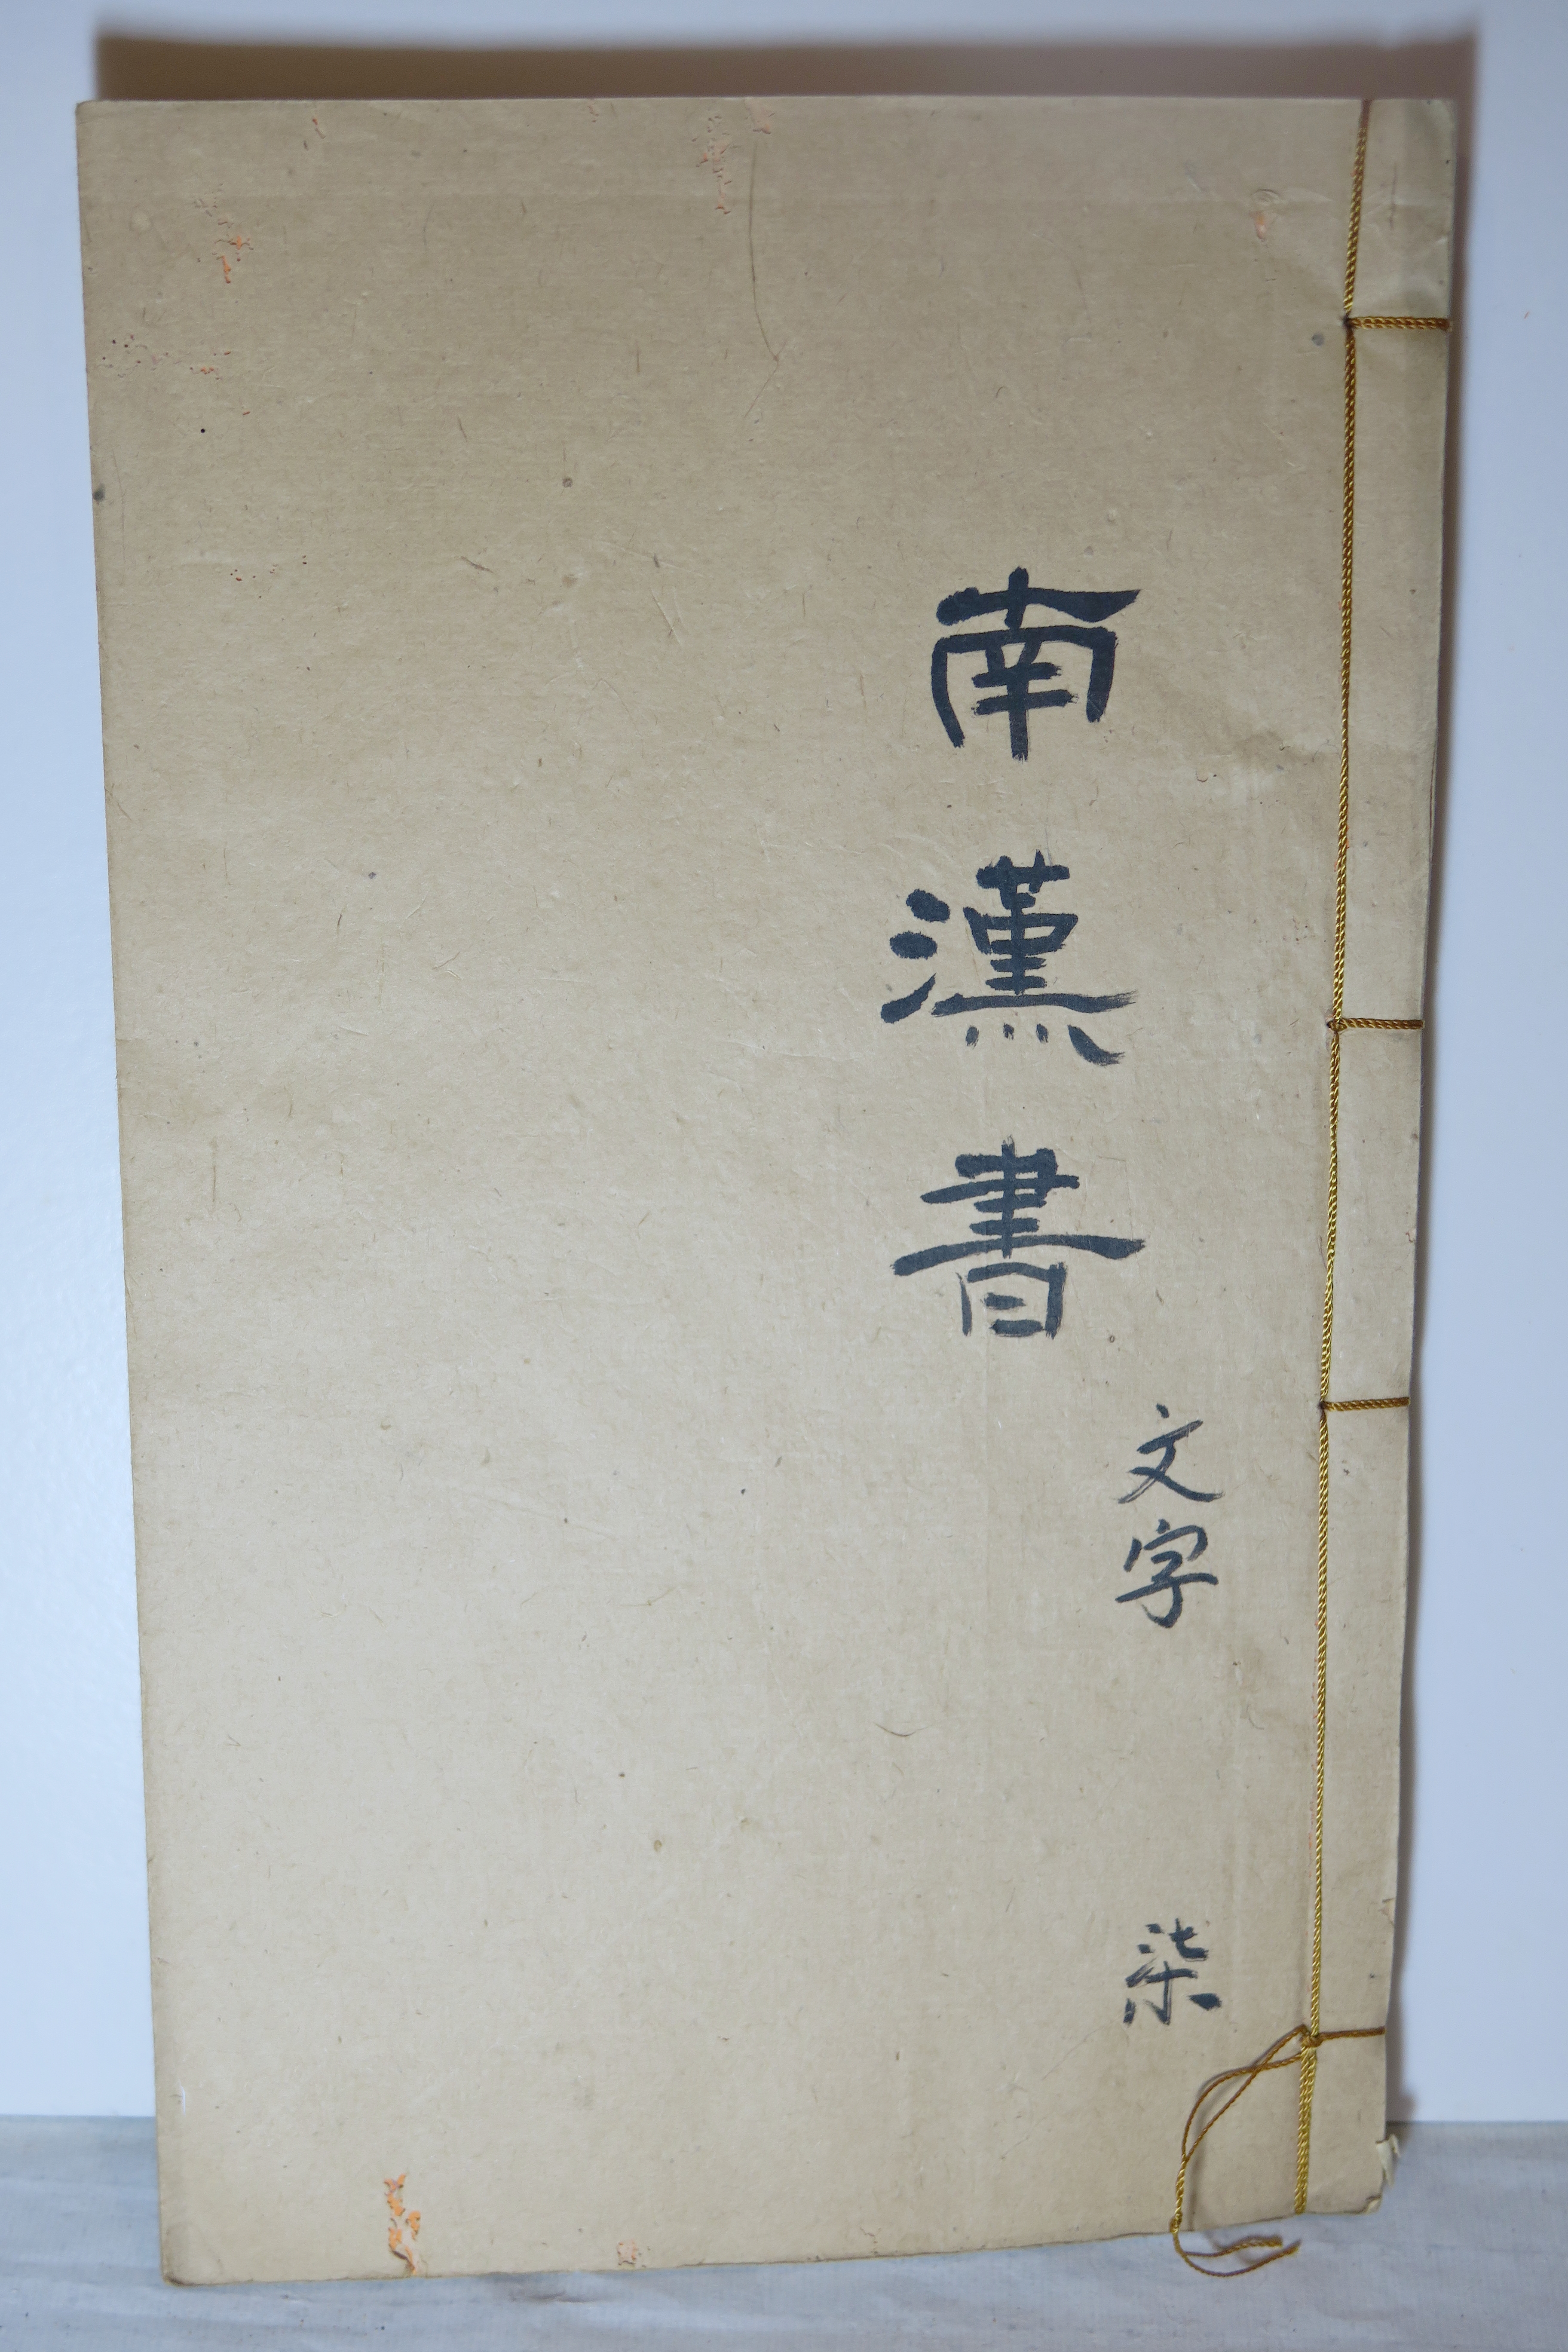 南漢書
文字
柒